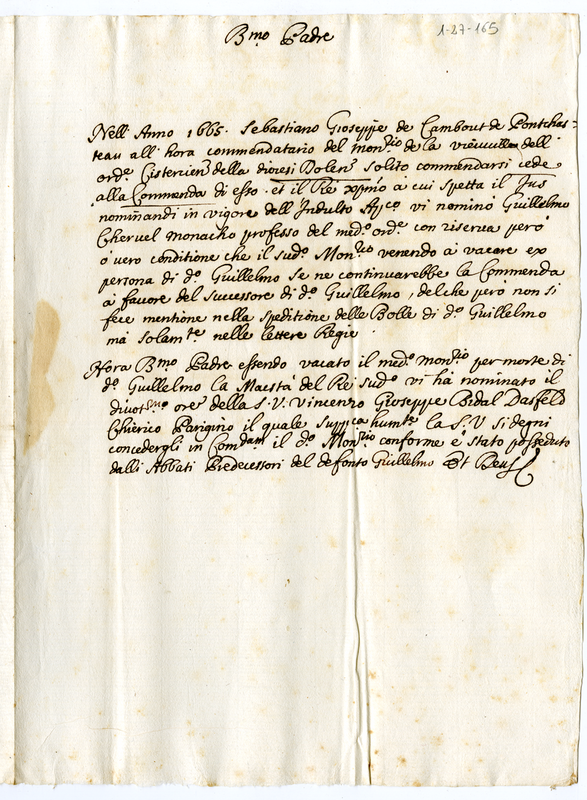 Bmo Padre
1-27-165
Nell' Anno 1665. Sebastiano Gioseppe de Cambout de Pontchas=
teau all' hora commendatario del montio de la vieuville dell'
orde Cisterien della diocesi Dolen solito commendarsi cede
alla Commenda di esso. et il Re xpmo à cui spetta il Jus
nominandi in vigore dell' Indulto Apco vi nominò Guillelmo
Chervel monacho professo del medo orde con riserva però
ò vero conditione che il sudo Montio venendo à vacare ex
persona di do Guillelmo se ne continuarebbe la Commenda
à favore del successore di do Guillelmo, delche però non si
fece mentione nella speditione della Bolle di do Guillelmo
mà solamte nelle lettere Regie.
Hora Bmo Padre essendo vacato il medo montio per morte di
do Guillelmo la Maestà del Re sudo vi hà nominato il
divotmo ore della S.V. Vincenzo Gioseppe Bidal Dasfeld
Chierico Parigino il quale suppca humte la S.V si degni
concedergli in Comdam il do Montio conforme è stato posseduto
dalli Abbati Predecessori del defonto Guillelmo Et Deus